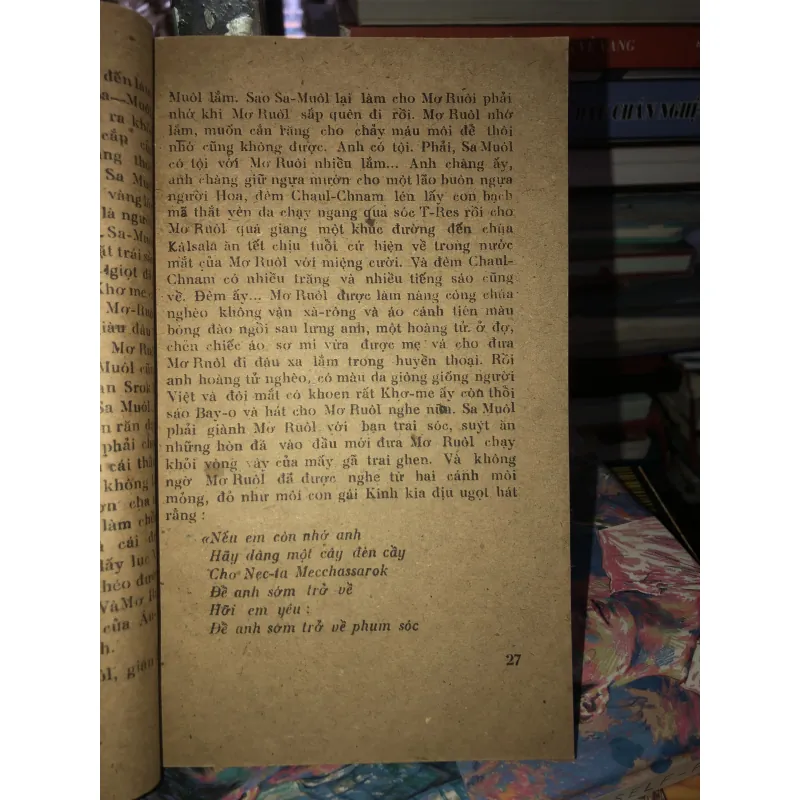 đến làm
a—Muôl
ra khu
cắp
ng thu
Sa Muôl
vàng
là ngu
Sa-Muôl
ặt trái
giọt
Khơ me
Mơ-Ruô
iàu
Mơ Ru
Muôl
n Srok
Sa Muôl
n răn
phải ch
cái
không
ơn cha
làm ch
cái
lấy lục
héo đu
VàMơ
của
h.
ôl, gian
Muôl lắm. Sao Sa-Muôl lại làm cho Mơ Ruôl phải
nhớ khi Mơ Ruôl sắp quên đi rồi. Mơ Ruôl nhớ
lắm, muốn cắn răng cho chảy máu môi để thôi
nhớ cũng không được. Anh có tội. Phải, Sa Muôl
có tội với Mơ Ruôl nhiều lắm... Anh chàng ấy,
anh chàng giữ ngựa mướn cho một lão buôn ngựa
người Hoa, đêm Chaul-Chnam lén lấy con bạch
mã thắt yên da chạy ngang qua sóc T-Res rồi cho
Mơ Ruôl quá giang một khúc đường đến chùa
Kàlsala ăn tết chịu tuổi cứ hiện về trong nước
mắt của Mơ Ruôl với miệng cười. Và đêm Chaul-
Chnam có nhiều trăng và nhiều tiếng sáo cũng
về. Đêm ấy... Mơ Ruôl được làm nàng công chúa
nghèo không vận xà-rông và áo cánh tiên màu
bông đào ngồi sau lưng anh, một hoàng tử ở đợ,
chèn chiếc áo sơ mi vừa được mẹ vá cho đưa
Mơ Ruôl đi đâu xa lắm trong huyền thoại. Rồi
anh hoàng tử nghèo, có màu da giông giống người
Việt và đôi mắt có khoen rất Khơ-me ấy còn thổi
sáo Bay-o và hát cho Mơ Ruôl nghe nữa. Sa Muôl
phải giành Mơ Ruôl với bạn trai sóc, suýt ăn
những hòn đá vào đầu mới đưa Mơ Ruôl chạy
khỏi vòng vây của mấy gã trai ghen. Và không
ngờ Mơ Ruôl đã được nghe từ hai cánh môi
mỏng, đỏ như môi con gái Kinh kia dịu ngọt hát
rằng :
«Nếu em còn nhớ anh
Hãy dâng một cây đèn cầy
Cho Nẹc-ta Mecchassarok
Để anh sớm trở về
Hỡi em yêu :
Để anh sớm trở về phum sóc
27
VÀNG
CHÂN NGHỆ